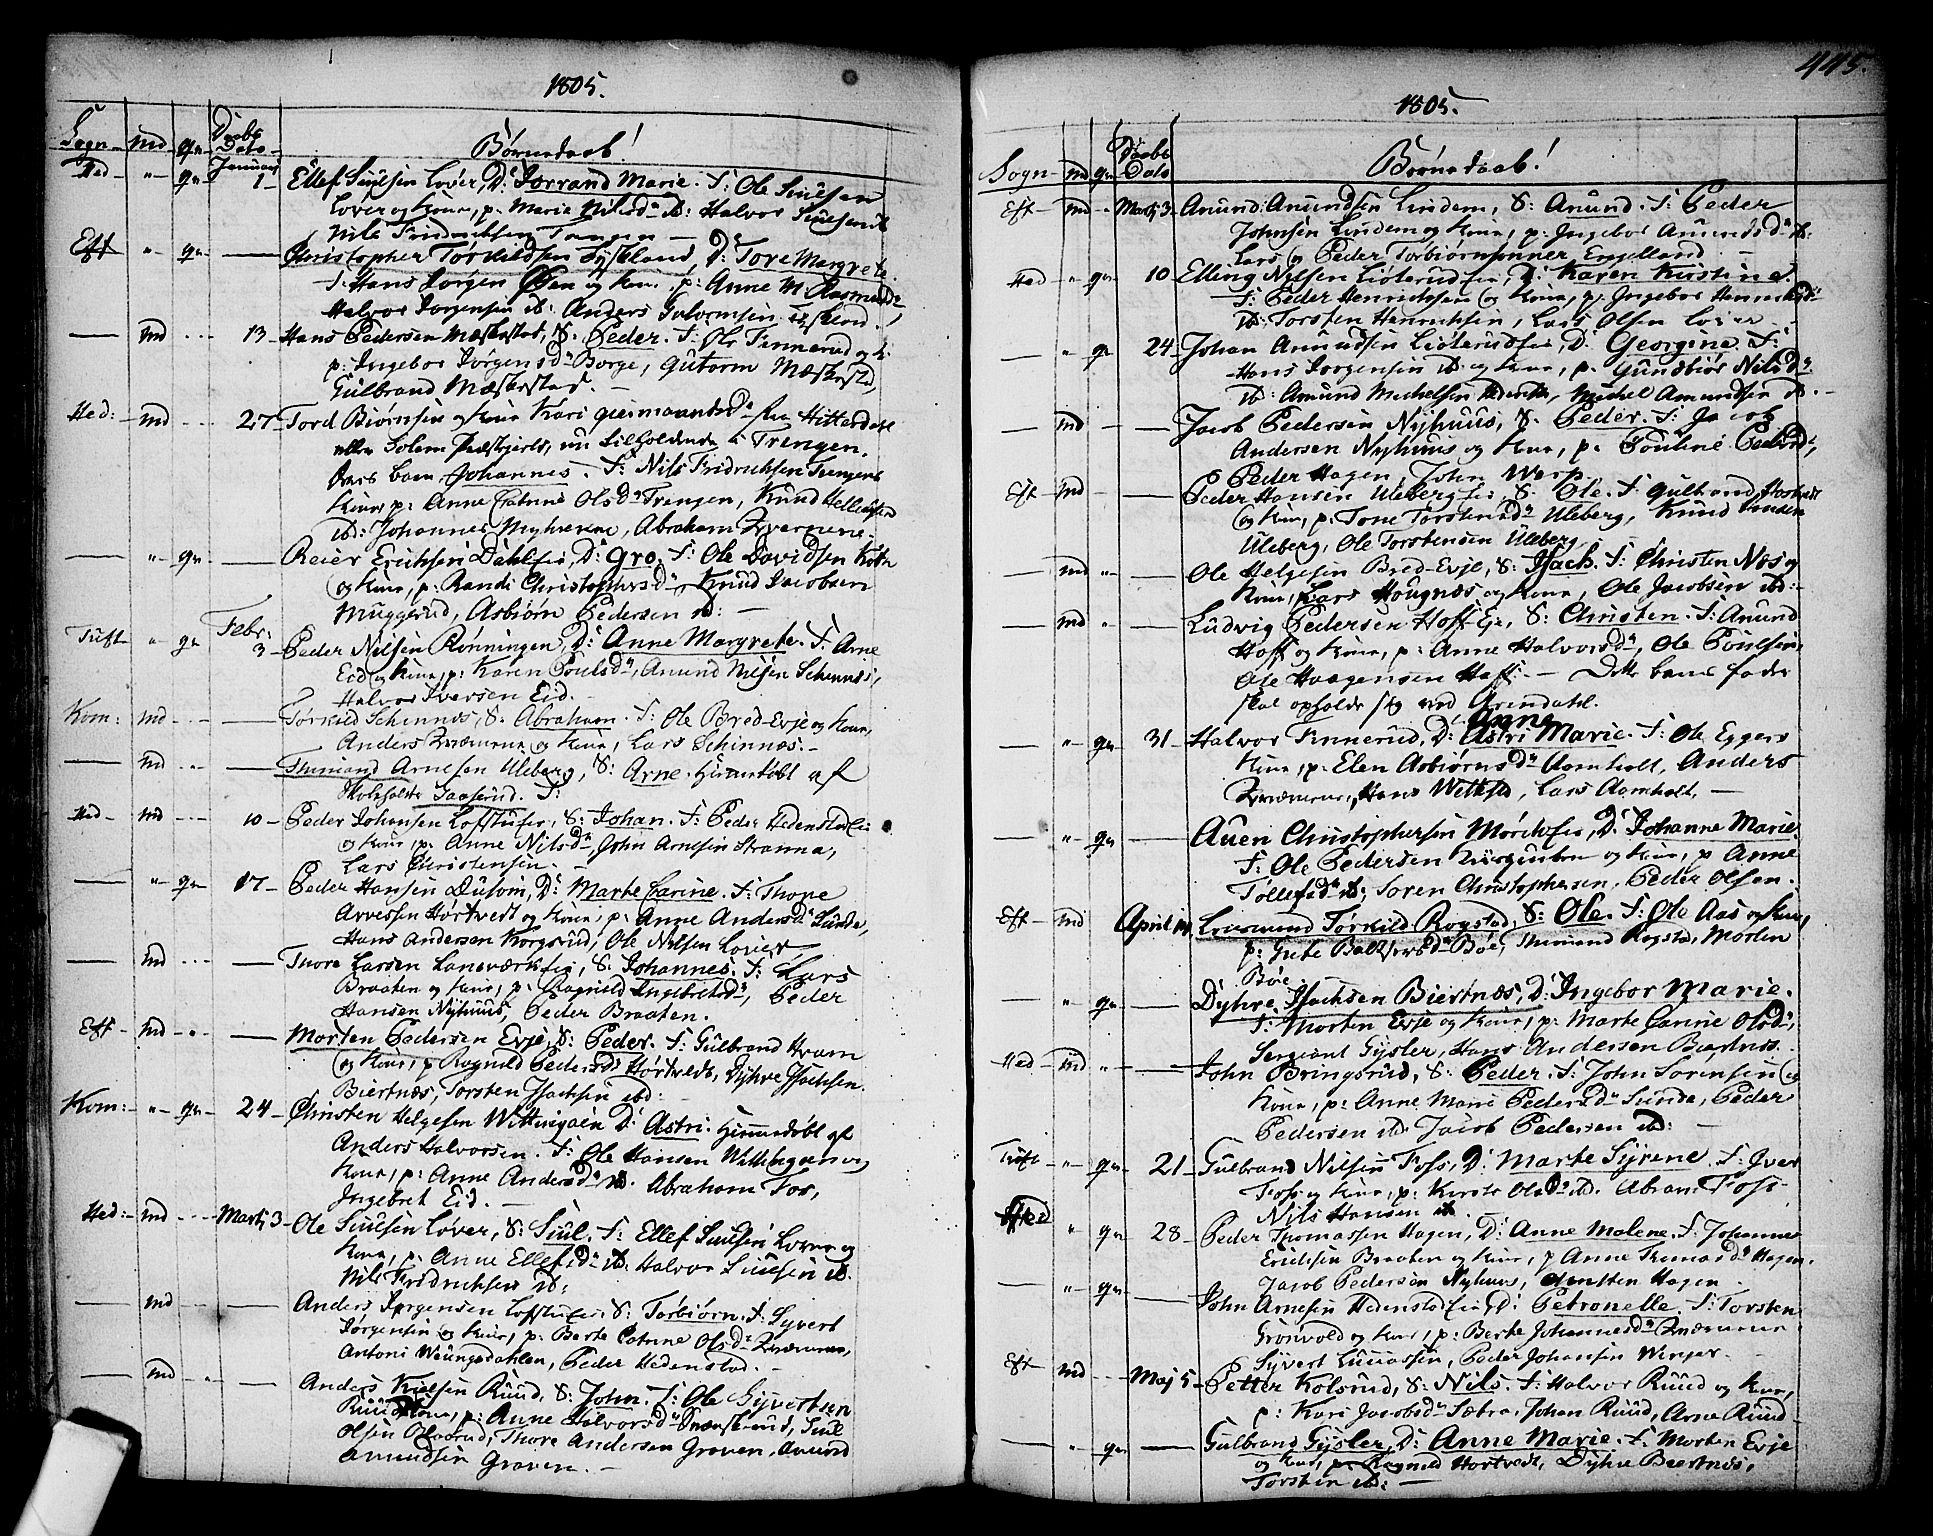 1805.
Sogn - Md - qn - Daabs Dato - Børnedaab!
Januari
Hed - " - qn - 1 - Ellef Siulsen Lover, D: Jorrand Marie. F: Ole Siulsen
Lover og Kone, p. Marie Nilsd: ib: Halvor Siulsen ib
Nils Fridrichsen Trengen -
Eft " qn - Christopher Torkildsen Tyskland, D: Tore Margrete.
F: Hans Jørgen Øen og Kone, p: Anne M: Rasmusd:
Halvor Jorgensen ib: Anders Gulormsen
- Md - 13 - Hans Pedersen Mæskestad, S: Peder. F: Ole Finnerud og K:
p: Ingebor Jørgensd: Borge, Gutorm Mæskestad,
Gulbrand Mæskestad. -
Hed: Md - 27 - Tord Biørnsen og Kone Kari fra Hitterdal
eller Solem Præstegield, nu tilholdende i Trengen.
Deres barn Johannes. F: Nils Fridrichsen Trengens
Kone, p: Anne Catrine Olsd: Trengen, Knud Hellersen
ib: Johannes Myhrerene, Abraham Qværnene.
- " - qn - Reier Erichsen Dahlseie, D: Gro, F: Ole Davidsen
og Kone, p: Randi Christophersd: Knud Jacobsen
Muggerud, Asbiørn Pedersen ib: -
Tuft - " qn Febr: 3 - Peder Nilsen Rønningen, D: Anne Margrete. F: Arne
Eid og Kone, p: Karen Poulsd: Amund Nilsen Schinnes,
Halvor Iversen Eid. -
Kom: Md - Torkild Schinnes, S: Abraham. F: Ole Bred-Evje og Kone,
Anders og Kone, Lars Schinnæs. -
- Md - Thimand Arnesen Uleberg, S: Arne. Hiemedøbt af
Skoleholder Gaaserud. F:
Hed - Md - 10 - Peder Johansen Loftstueie, S: Johan. F: Peder Hedenstadeie
og Kone, p: Anne Nilsd: John Arnesen Stranna,
Lars Christensen. -
- " - qn 17 - Peder Hansen Dusom, D: Marte Carine. F: Thore
Arvessen Hørtvedt og Kone, p: Anne Andersd: Lunde,
Hans Andersen Korgerud, Ole Nilsen Lover
- Md - Thore Larsen Laneværkseie, S: Johannes. F: Lars
Braaten og Kone, p: Ragnild Ingebretsd: Peder
Hansen Nyhuus, Peder Braaten.
Eft - Md - Morten Pedersen Evje, S: Peder. F: Gulbrand Hvam
og Kone, p Rognild Pedersd: Hørtvedt, Dyhre Isachsen
Biertnæs, Torsten Isachsen ib:
Kom: - " - qn - 24 - Christen Helgesen Wittingaen D: Astri. Hiemedøbt af
Anders Halvorsen. F: Ole Hansen Wittingaen og
Kone, p: Anne Andersd: ib. Abraham Fos,
Ingebret Eid. -
Hed: - Md - Martj 3 - Ole Siulsen Lover, S: Siul. F: Ellef Siulsen Lover og
Kone, p: Anne Ellefsd: ib: Halvor Siulsen ib.
Nils Fridrichsen ib:
- Md - Anders Jorgensen Loftstueie, S: Torbiørn. F: Syvert
Jørgensen og Kone, p: Berte Catrine Olsd:
Antoni Weungsdahlen, Peder Hedenstad. -
- Md - Anders Kielsen Ruud, S: John. F: Ole Gyvertsen
Ruud Kone, p: Anne Halvorsd: Siul
Olsen Thore Andersen Graven, Amund
Amundsen Graven. -
445.
1805.
Sogn - Md - qn - Daabs Dato - Børnedaab!
Eft - Md - Martj 3 - Amund Amundsen Lindem, S: Amund. F: Peder
Johnsen Lindem og Kone, p: Ingebor Amundsd: ib:
Lars og Peder Torbiørnsønner Engelland -
Hed - " qn - 10 - Elling Nilsen Liøterudeie, D: Karen Kirstine.
F: Peder Henrichsen og Kone, p: Ingebor Henrichsd:
ib: Torsten Henrichsen, Lars Olsen Lover -
- " qn 24 - Johan Amundsen Liøterudeie, D: Georgine. F:
Hans Jorgensen ib og Kone, p: Gunnbiør Nilsd:
ib: Amund Michelsen Michel Amundsen ib. -
- Md - Jacob Pedersen Nyhuus, S: Peder. F: Jacob
Andersen Nyhuus og Kone, p: Pouline Pedersd:
Peder Hagen, John Werp.
Eft - Md - Peder Hansen Ulebergeie, S: Ole. F: Gulbrand
og Kone, p: Tone Torstensd: Uleberg, Knud Hansen
Uleberg, Ole Torstensen Uleberg.
- Md " - Ole Helgesen Bred-Evje, S: Isach. F: Christen Næs og
Kone, Lars Hougnæs og Kone, Ole Jacobsen ib: -
- Md " - Ludvig Pedersen Hoff Ei, S: Christen. F: Amund
Hoff og Kone, p: Anne Halvorsd: Ole Poulsen,
Ole Haagensen Hoff. - Dette barns fader
skal opholde sig ved Arendahl.
- " - qn 31 - Halvor Finnerud, D: Astri Anne Marie. F: Ole Eggers
Kone, p: Elen Asbiørnsd: Aamholt, Anders
Hans Wittestad, Lars Aamholt. -
- " qn - Auen Christophersen Mørchseie, D: Johanne Marie.
F: Ole Pedersen og Kone, p Anne
Tollefsd: ib: Soren Christophersen, Peder Olsen.
Eft - Md April 14 - Torkild Rogstad, S: Ole. F: Ole Aas og Kone,
p: Gute Baltzersd: Bøe, Thimand Rogstad, Morten
Bøe
- " - qn - Dyhre Isachsen Biertnæs, D: Ingebor Marie.
F: Morten Evje og Kone, p: Marte Carine Olsd:
Sergiant Gysler, Hans Andersen Biertnæs
Hed - Md " - John Bringsrud, S: Peder. F: John Sorensen og
Kone, p: Anne Marie Pedersd: Lunde, Peder
Pedersen ib: Jacob Pedersen ib: -
Tuft - " - qn - 21 - Gulbrand Nilsen Foss, D: Marte Syrene. F: Iver
Foss og Kone, p: Kirste Olsd: ib. Abram Foss
Nils Hansen ib.
Hed " qn - 28 - Peder Thomassen Hagen, D: Anne Malene. F: Johannes
Erichsen Braaten og Kone, p Anne Thomasd: Hagen.
Jacob Pedersen Nyhuus, Hagen
- " qn - John Arnesen Hedenstadeie, D: Petronelle. F: Torsten
Grønvold og Kone, p: Berte Johannesd:
Syvert Lucassen, Peder Johansen Winger -
Eft - Md - Maj 5 - Petter Kolsrud, S: Nils. F: Halvor Ruud og Kone,
p: Kari Jacobsd: Sætra, Johan Ruud, Arne Ruud
- " qn - Gulbrand Gysler, D: Anne Marie. F: Morten Evje
og Kone, p: Ragnild Hørtvedt, Dyhre Biertnæs,
Torsten ib: -